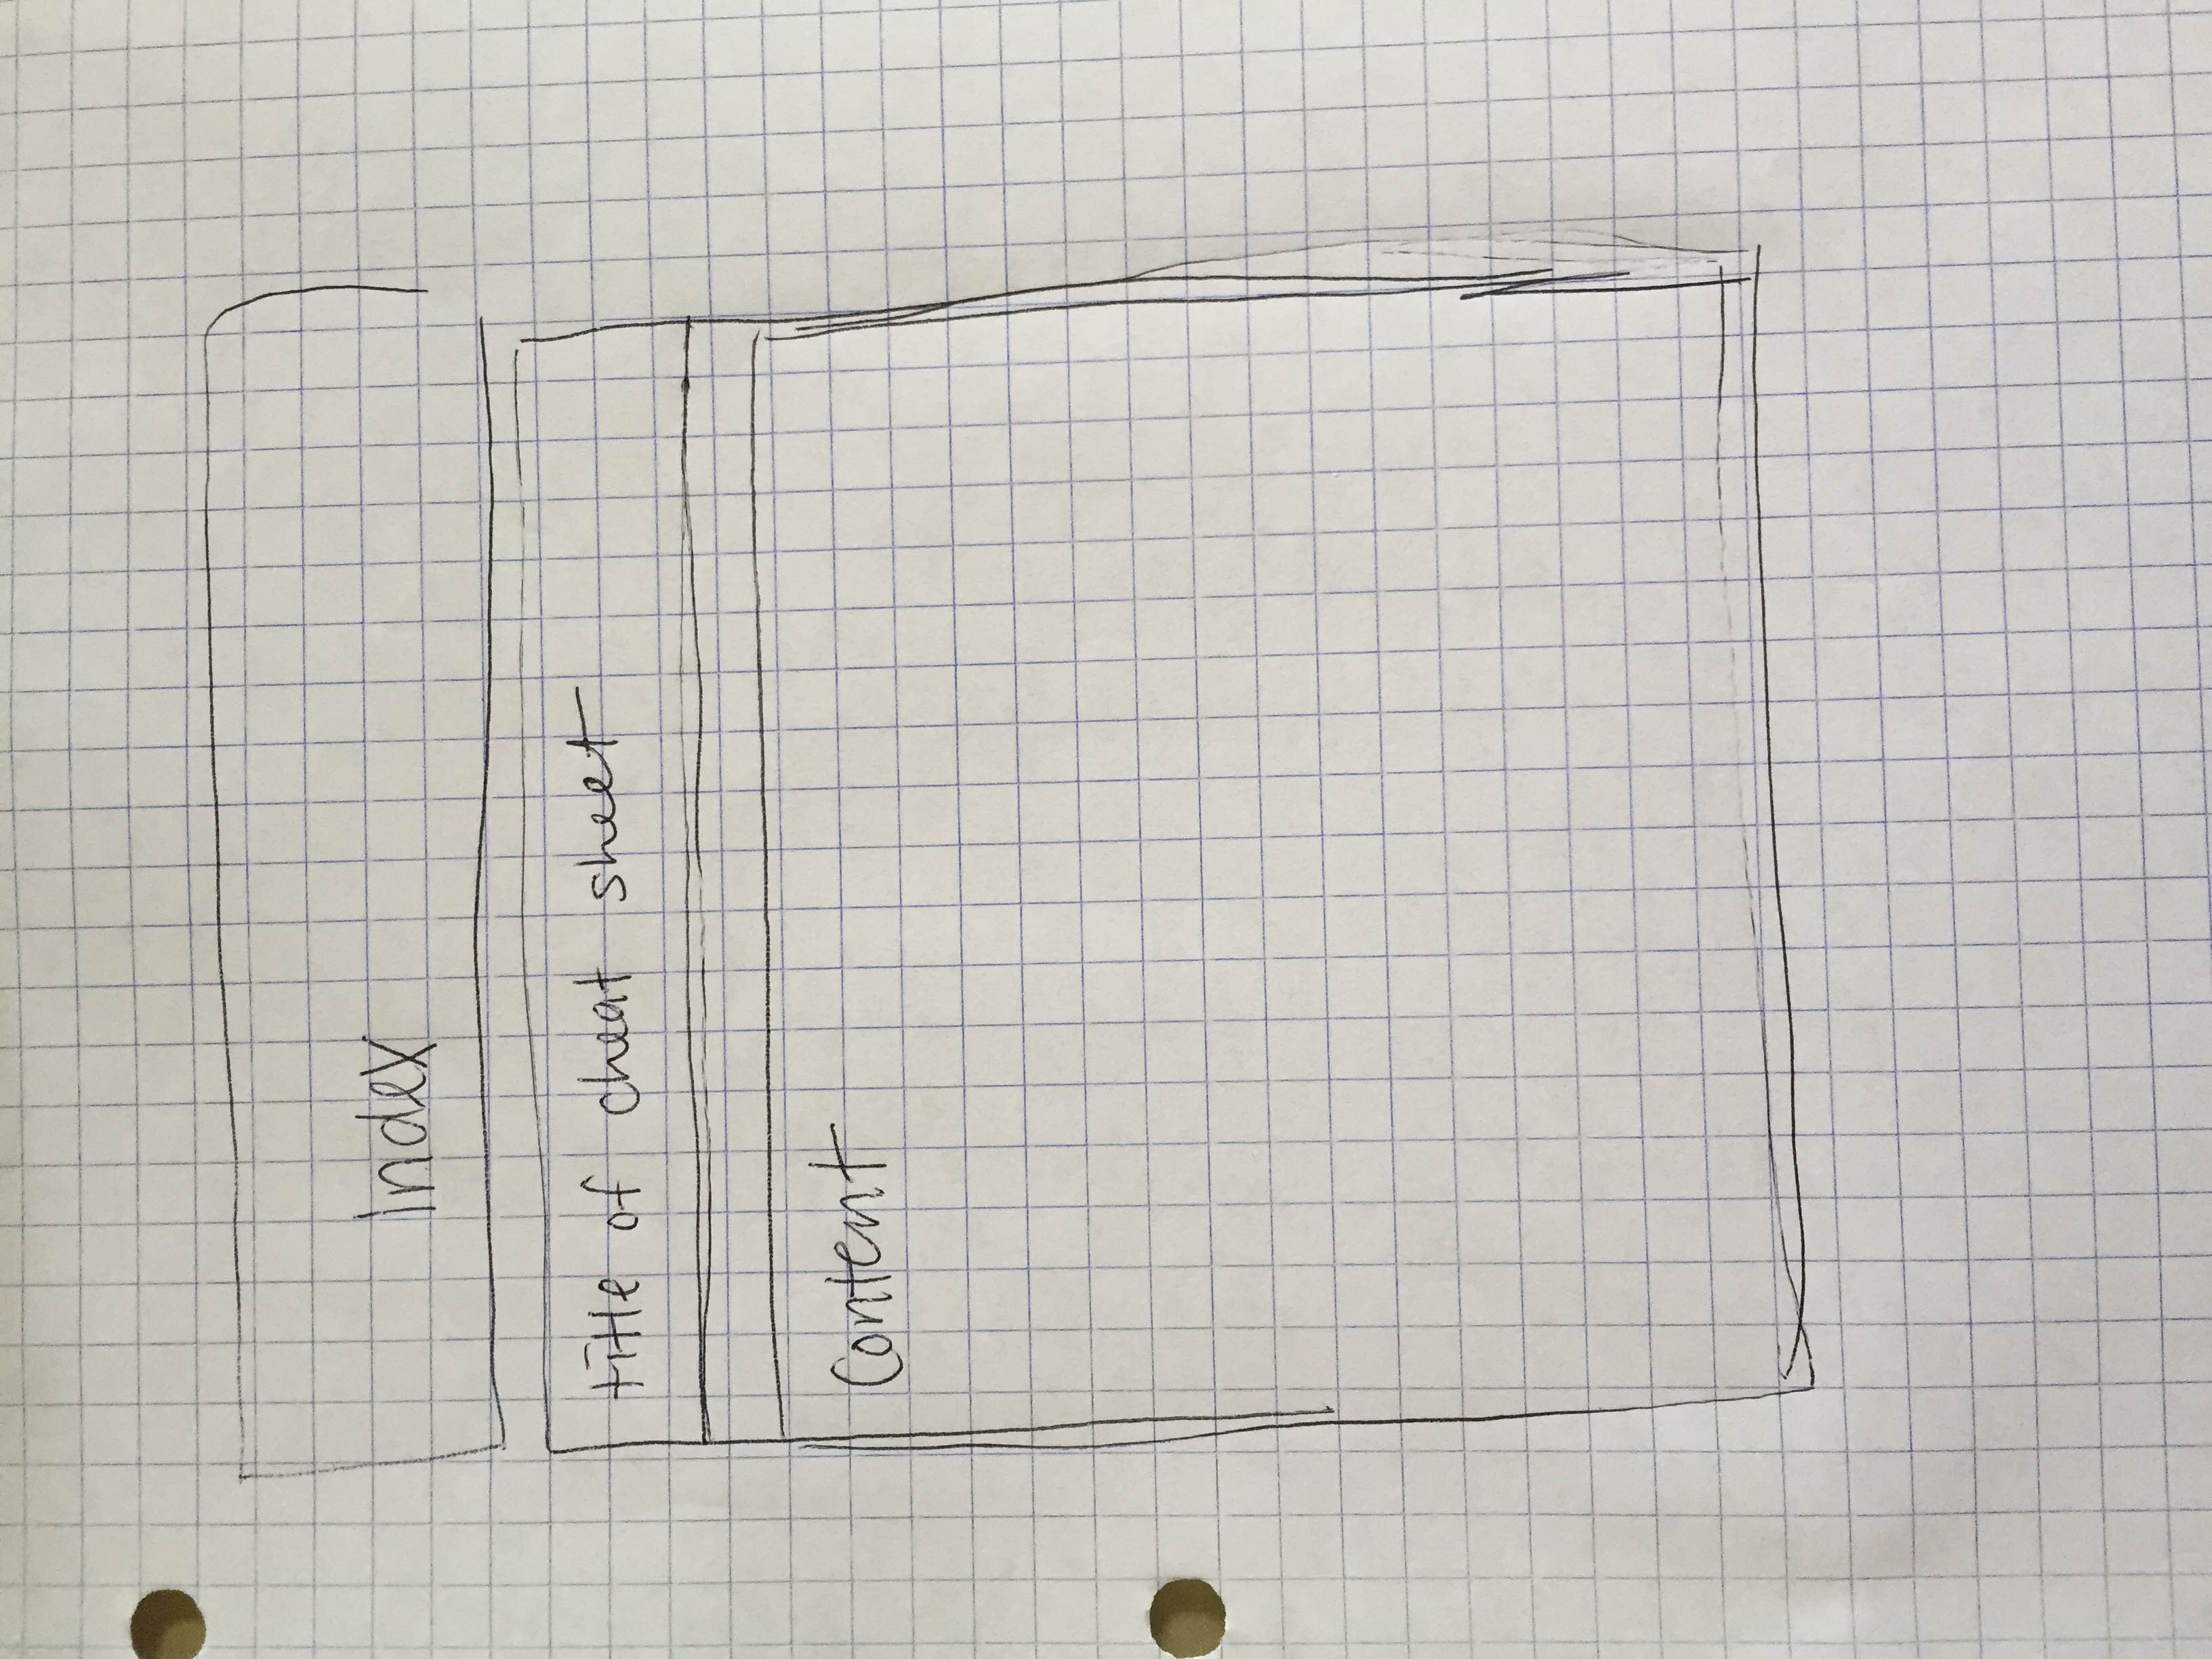 Index
title of cheat sheet
Content